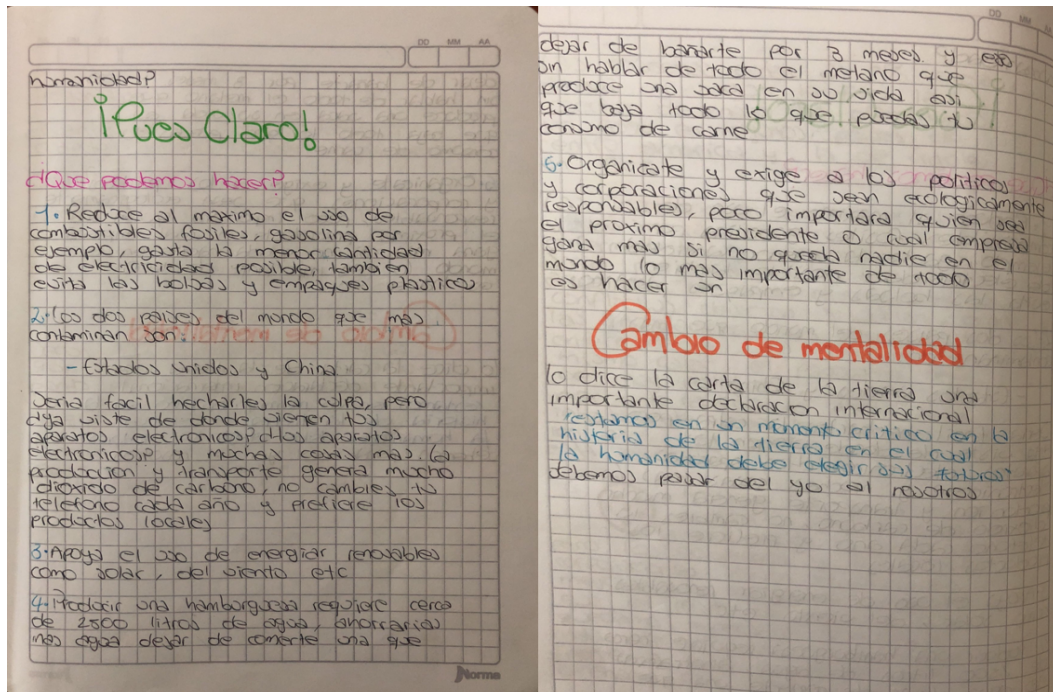 DD MM AA
humanidad?
¡Pues Claro!
¿Que podemos hacer?
1. Reduce al maximo el uso de
combustibles fosiles, gasolina por
ejemplo, gasta la menor cantidad
de electricidad posible, tambien
evita las bolsas y empaques plastico
2. Los dos paises del mundo que mas
contaminan son:
- Estados unidos y China
Seria facil hecharles la culpa, pero
¿ya viste de donde vienen tus
aparatos electronicos? ¿tus aparatos
electronicos? y muchas cosas mas, la
produccion y transporte genera mucho
dioxido de carbono, no cambies tu
telefono cada año y prefiere los
productos locales
3. Apoya el uso de energiar renovables
como solar, del viento etc
4. Producir una hamburguesa requiere cerca
de 2500 litros de agua, ahorrarias
mas agua dejar de comerte una que
Norma
DD MM
dejar de bañarte por 3 meses y eso
sin hablar de todo el metano que
produce una vaca en su vida asi
que baja todo lo que puedas tu
consumo de carne
5. Organicate y exige a los politicos
y corporaciones que sean ecologicamente
responsables, poco importara quien sea
el proximo presidente o cual empresa
gana mas si no queda nadie en el
mundo lo mas importante de todo
es hacer un
Cambio de mentalidad
lo dice la carta de la tierra una
importante declaracion internacional
"estamos en un momento critico en la
historia de la tierra en el cual
la humanidad debe elegir sus futuros"
debemos pasar del yo al nosotros